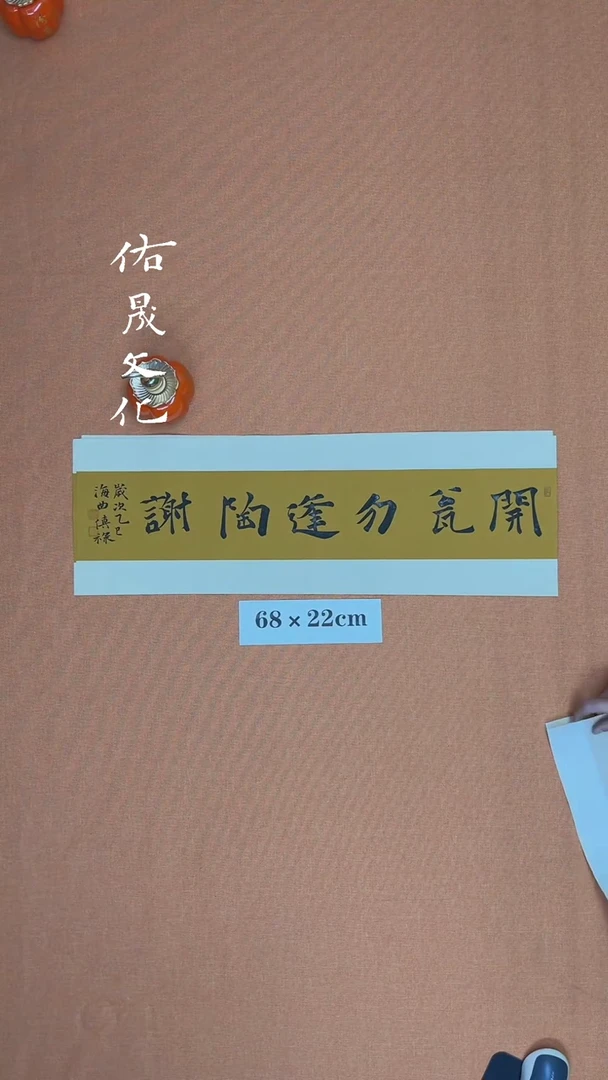 佑晟文化
開瓮勿逢陶謝
歲次乙巳
海曲慎祿
68×22cm